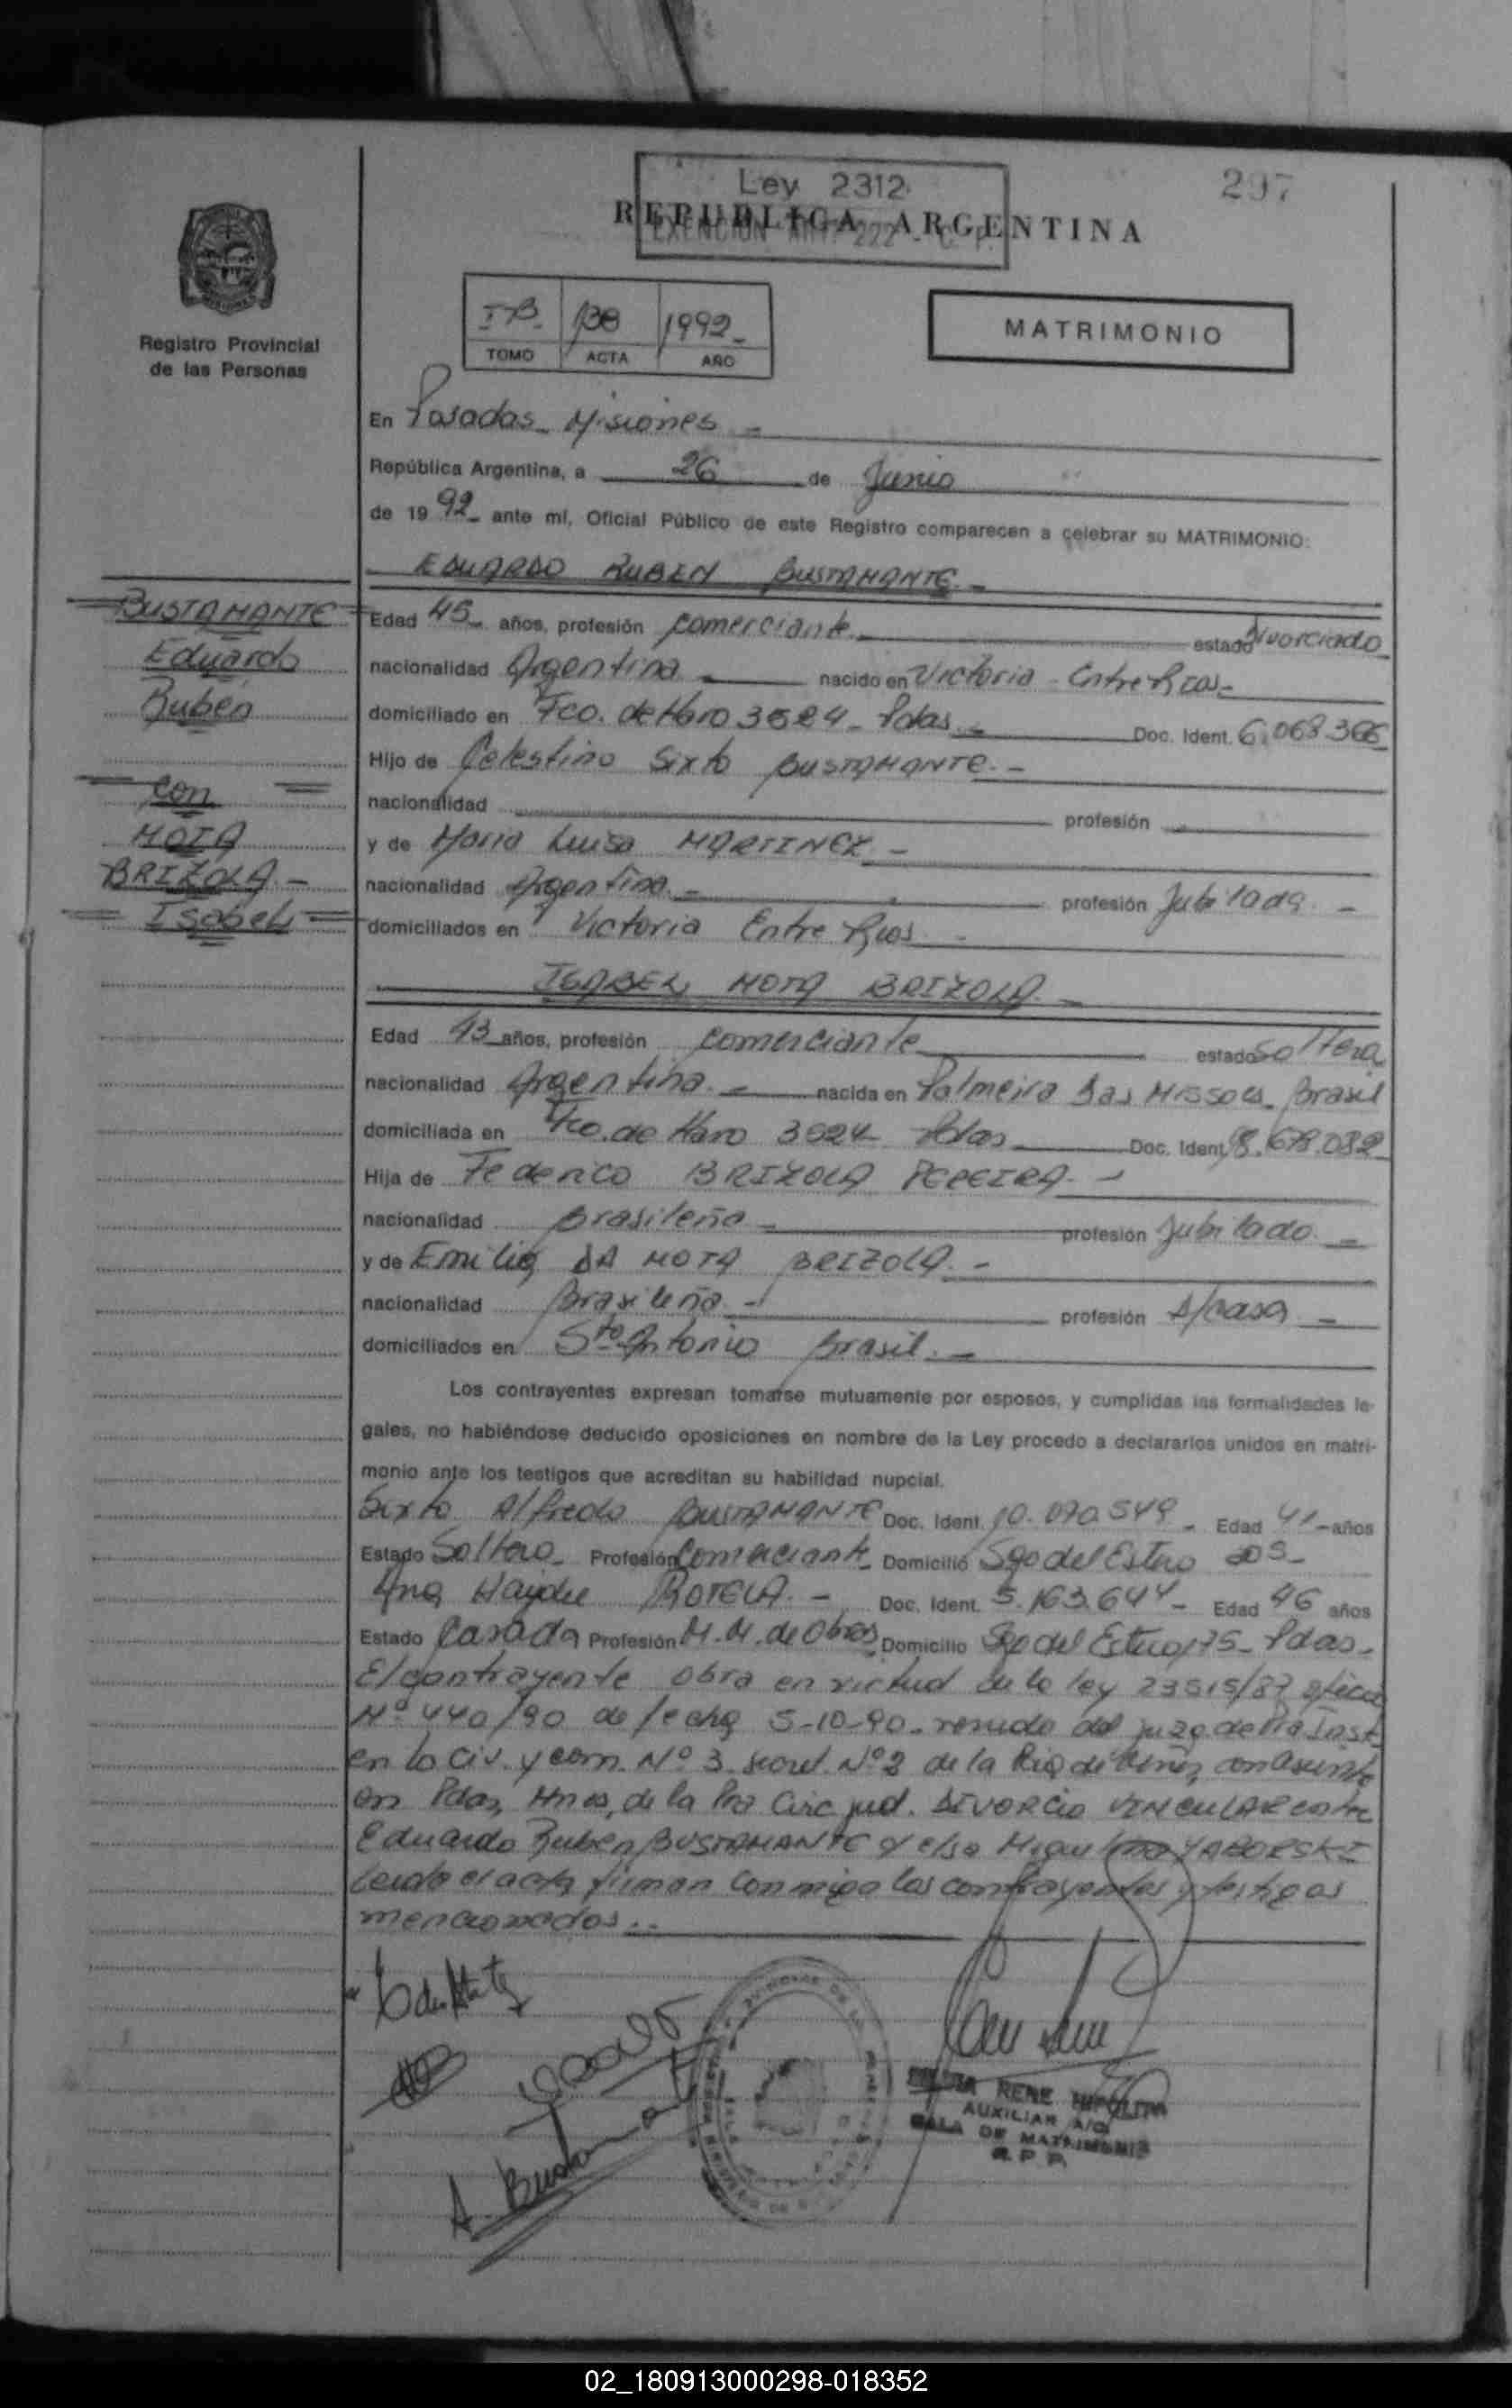 Ley 2312
297
REPUBLICA ARGENTINA
EXENCION ART. 222 - C. P.
Registro Provincial
de las Personas
1992
TOMO ACTA AÑO
MATRIMONIO
En Posadas Misiones
República Argentina, a 26 de Junio
de 1992 ante mí, Oficial Público de este Registro comparecen a celebrar su MATRIMONIO:
EDUARDO RUBEN BUSTAMANTE
BUSTAMANTE
Eduardo
Rubén
con
MOTA
BRIZOLA
Isabel
Edad 45 años, profesión comerciante estado Divorciado
nacionalidad Argentina nacido en Victoria - Entre Rios
domiciliado en Fco. de Haro 3524 - Pdas. Doc. Ident. 6.068.366
Hijo de Celestino Sixto BUSTAMANTE
nacionalidad profesión
y de Maria Luisa MARTINEZ
nacionalidad Argentina profesión Jubilada
domiciliados en Victoria Entre Rios
ISABEL MOTA BRIZOLA
Edad 43 años, profesión comerciante estado Soltera
nacionalidad Argentina nacida en Palmeira Das Missoes Brasil
domiciliada en Fco. de Haro 3524 Pdas Doc. Ident. 18.678.082
Hija de Federico BRIZOLA PEREIRA
nacionalidad Brasileña profesión Jubilado
y de Emilia DA MOTA BRIZOLA
nacionalidad Brasileña profesión s/casa
domiciliados en Sto Antonio Brasil
Los contrayentes expresan tomarse mutuamente por esposos, y cumplidas las formalidades le-
gales, no habiéndose deducido oposiciones en nombre de la Ley procedo a declararlos unidos en matri-
monio ante los testigos que acreditan su habilidad nupcial.
Sixto Alfredo BUSTAMANTE Doc. Ident. 10.090.549 Edad 41 años
Estado Soltero Profesión Comerciante Domicilio Sgo del Estero 205
Ana Haydee ROTELA Doc. Ident. 5.163.644 Edad 46 años
Estado Casada Profesión M.M. de Obras Domicilio Sgo del Estero 175 - Pdas.
El contrayente obra en virtud de la ley 23515/87 oficio
Nº 440/90 de fecha 5-10-90 del juzg. de 1ra Inst.
en lo Civ. y com. Nº 3 secret. Nº 2 de la con asiento
en Pdas, Mnes, de la 1ra Circ jud. DIVORCIO VINCULAR entre
Eduardo Ruben BUSTAMANTE y elsa
Leido el acta firman conmigo los contrayentes y testigos
mencionados
A. Bustama
RENE HIPOLITA
AUXILIAR A/C
SALA DE MATRIMONIO
R. P. P.
02_180913000298-018352